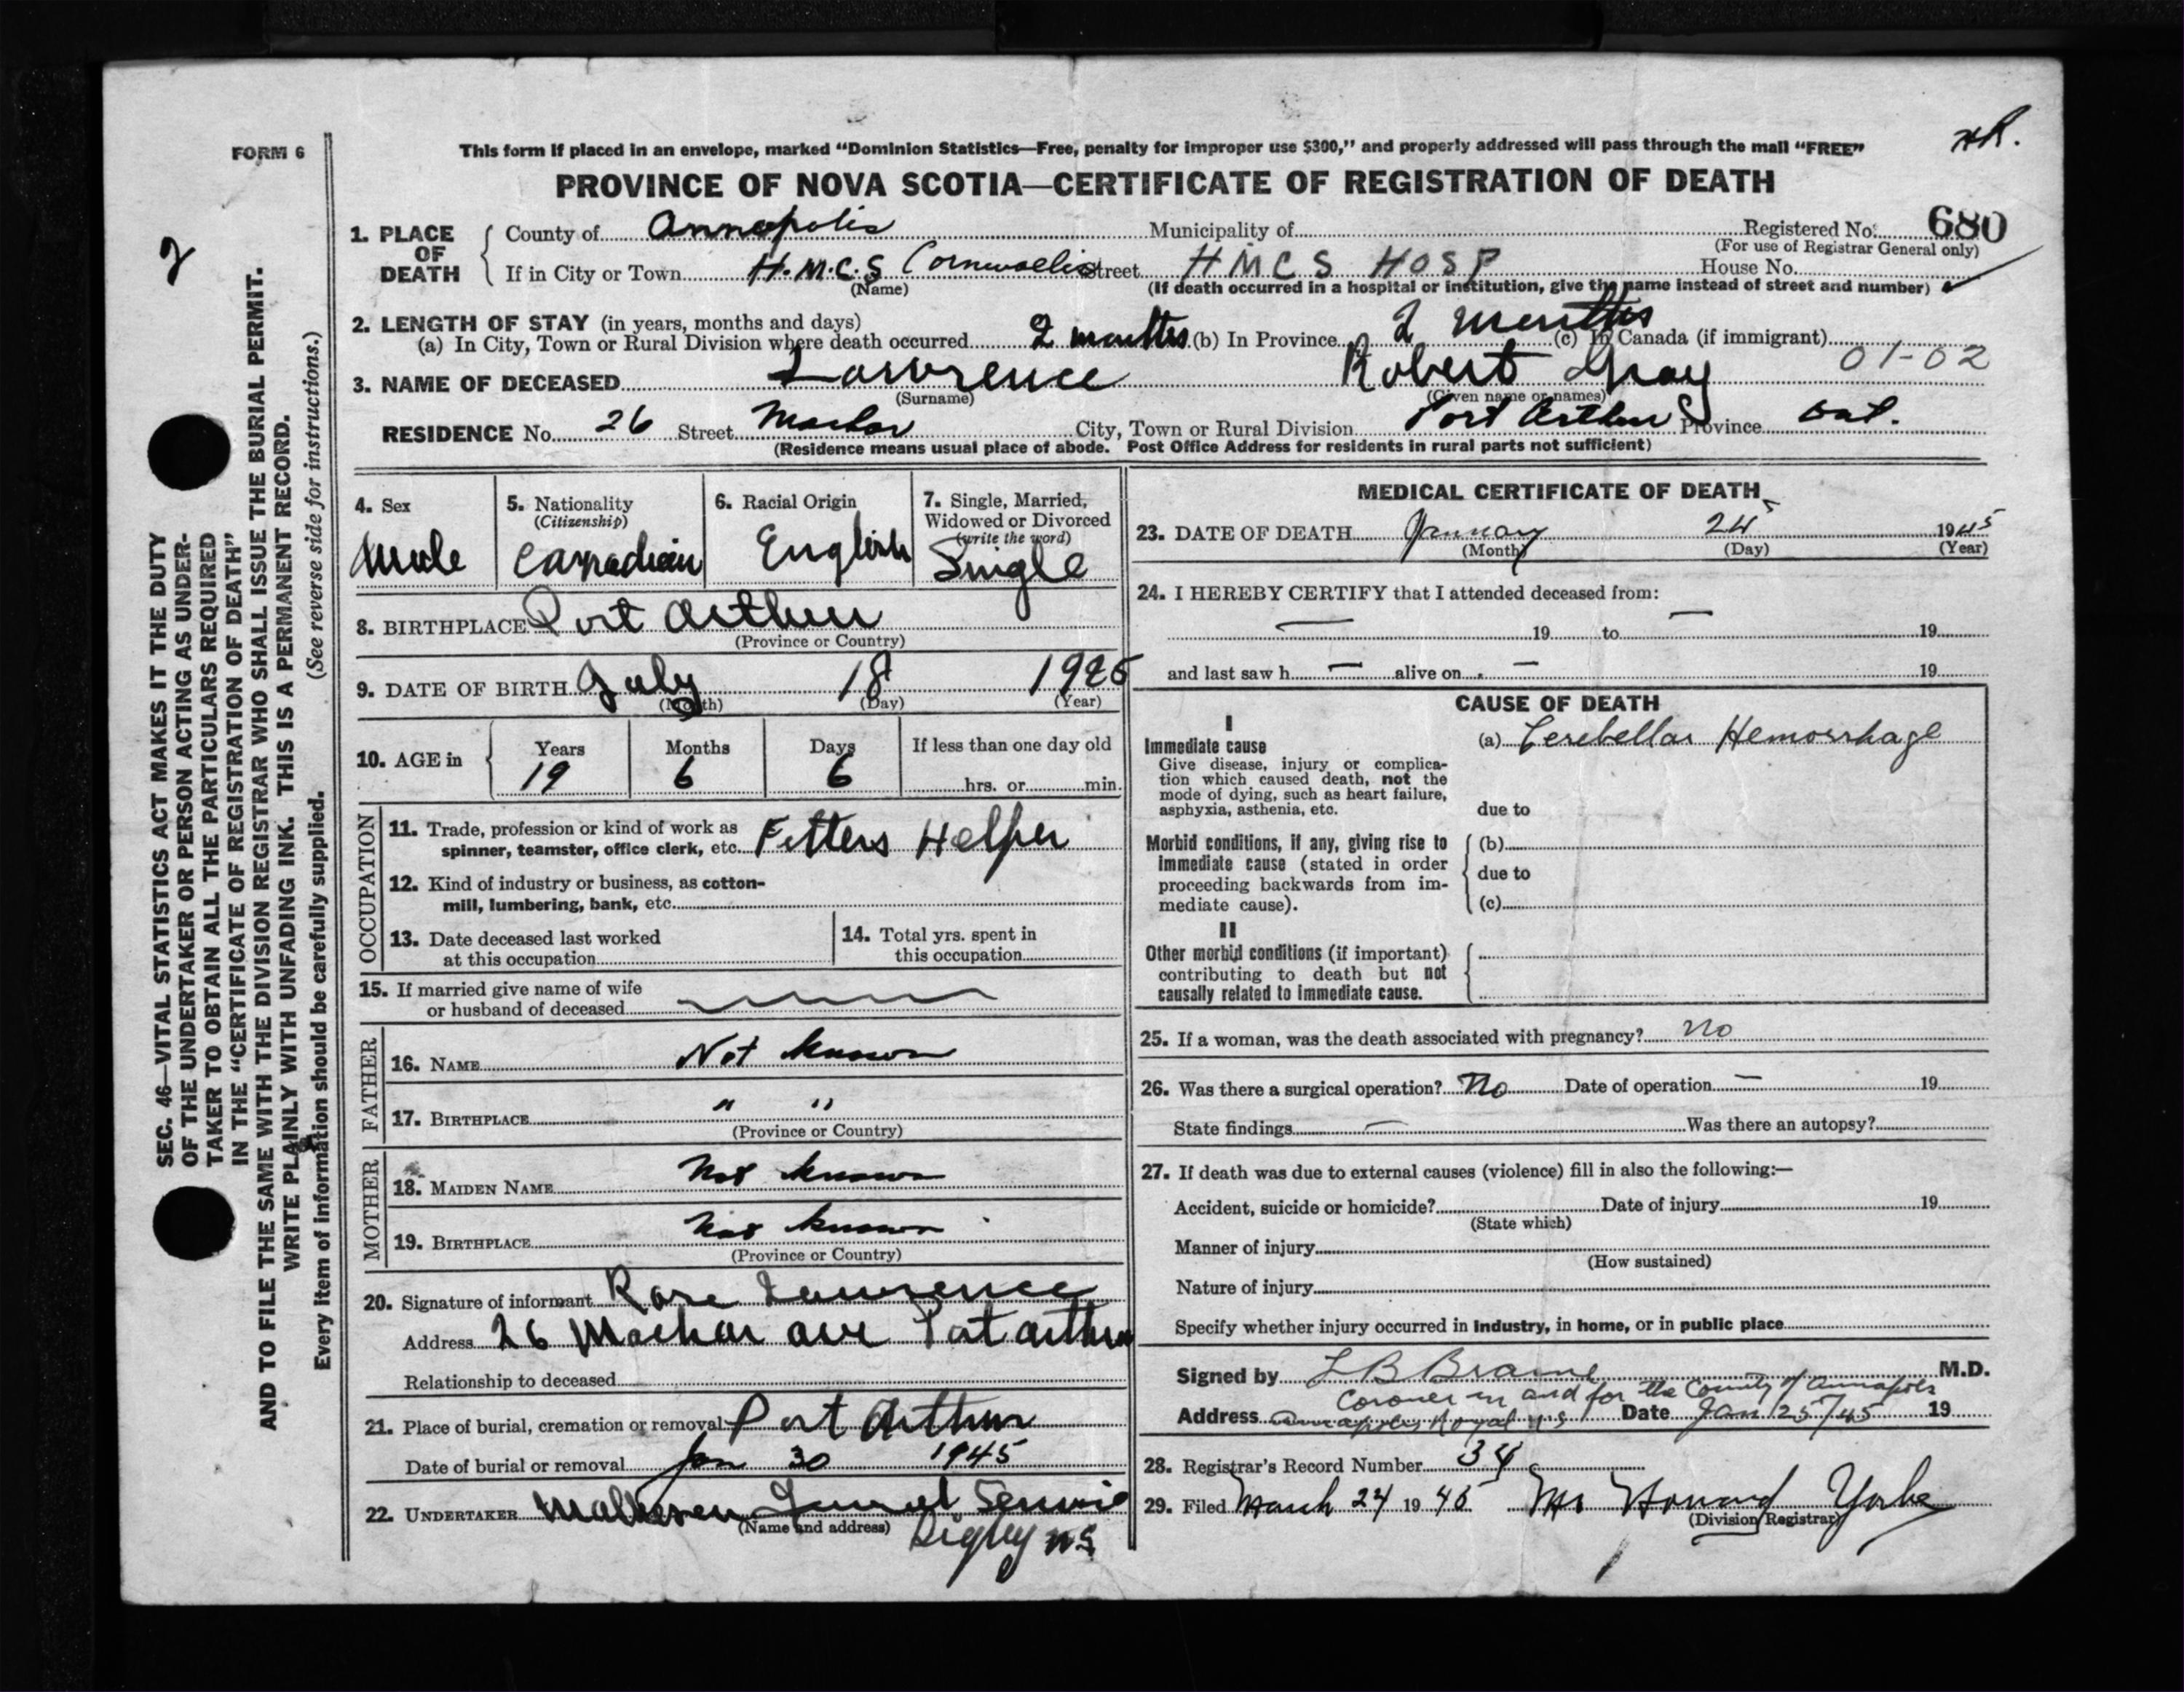 FORM 6
HR.
This form if placed in an envelope, marked "Dominion Statistics—Free, penalty for improper use $300," and properly addressed will pass through the mail "FREE"
PROVINCE OF NOVA SCOTIA—CERTIFICATE OF REGISTRATION OF DEATH
2
1. PLACE OF DEATH
County of Annapolis Municipality of Registered No. 680
(For use of Registrar General only)
If in City or Town H.M.C.S Cornwallis Street HMCS HOSP House No.
(Name) (If death occurred in a hospital or institution, give the name instead of street and number)
2. LENGTH OF STAY (in years, months and days)
(a) In City, Town or Rural Division where death occurred 2 months (b) In Province 2 months (c) In Canada (if immigrant)
01-02
3. NAME OF DECEASED Lawrence Robert Gray
(Surname) (Given name or names)
RESIDENCE No. 26 Street Machar City, Town or Rural Division Port Arthur Province Ont.
(Residence means usual place of abode. Post Office Address for residents in rural parts not sufficient)
4. Sex
Male
5. Nationality
(Citizenship)
Canadian
6. Racial Origin
English
7. Single, Married,
Widowed or Divorced
(write the word)
Single
8. BIRTHPLACE Port Arthur
(Province or Country)
9. DATE OF BIRTH July 18 1925
(Month) (Day) (Year)
10. AGE in Years Months Days If less than one day old
19 6 6 hrs. or min.
OCCUPATION
11. Trade, profession or kind of work as
spinner, teamster, office clerk, etc. Fitters Helper
12. Kind of industry or business, as cotton-
mill, lumbering, bank, etc.
13. Date deceased last worked
at this occupation
14. Total yrs. spent in
this occupation
15. If married give name of wife
or husband of deceased
FATHER
16. NAME Not known
17. BIRTHPLACE " "
(Province or Country)
MOTHER
18. MAIDEN NAME Not known
19. BIRTHPLACE Not known
(Province or Country)
20. Signature of informant Rose Lawrence
Address 26 Machar ave Port Arthur
Relationship to deceased
21. Place of burial, cremation or removal Port Arthur
Date of burial or removal Jan 30 1945
22. UNDERTAKER Funeral Service
(Name and address) Digby NS
MEDICAL CERTIFICATE OF DEATH
23. DATE OF DEATH January 24 1945
(Month) (Day) (Year)
24. I HEREBY CERTIFY that I attended deceased from:
— 19 to — 19
and last saw h — alive on — 19
CAUSE OF DEATH
I
Immediate cause
Give disease, injury or complica-
tion which caused death, not the
mode of dying, such as heart failure,
asphyxia, asthenia, etc.
(a) Cerebellar Hemorrhage
due to
Morbid conditions, if any, giving rise to
immediate cause (stated in order
proceeding backwards from im-
mediate cause).
(b)
due to
(c)
II
Other morbid conditions (if important)
contributing to death but not
causally related to immediate cause.
25. If a woman, was the death associated with pregnancy? No
26. Was there a surgical operation? No Date of operation — 19
State findings — Was there an autopsy?
27. If death was due to external causes (violence) fill in also the following:—
Accident, suicide or homicide? Date of injury 19
(State which)
Manner of injury
(How sustained)
Nature of injury
Specify whether injury occurred in industry, in home, or in public place
Signed by L B Braine M.D.
Coroner in and for the County of Annapolis
Address Annapolis Royal N.S Date Jan 25/45 19
28. Registrar's Record Number 34
29. Filed March 24 1945 Mr Howard Yorke
(Division Registrar)
SEC. 46—VITAL STATISTICS ACT MAKES IT THE DUTY
OF THE UNDERTAKER OR PERSON ACTING AS UNDER-
TAKER TO OBTAIN ALL THE PARTICULARS REQUIRED
IN THE "CERTIFICATE OF REGISTRATION OF DEATH"
AND TO FILE THE SAME WITH THE DIVISION REGISTRAR WHO SHALL ISSUE THE BURIAL PERMIT.
WRITE PLAINLY WITH UNFADING INK. THIS IS A PERMANENT RECORD.
Every item of information should be carefully supplied. (See reverse side for instructions.)